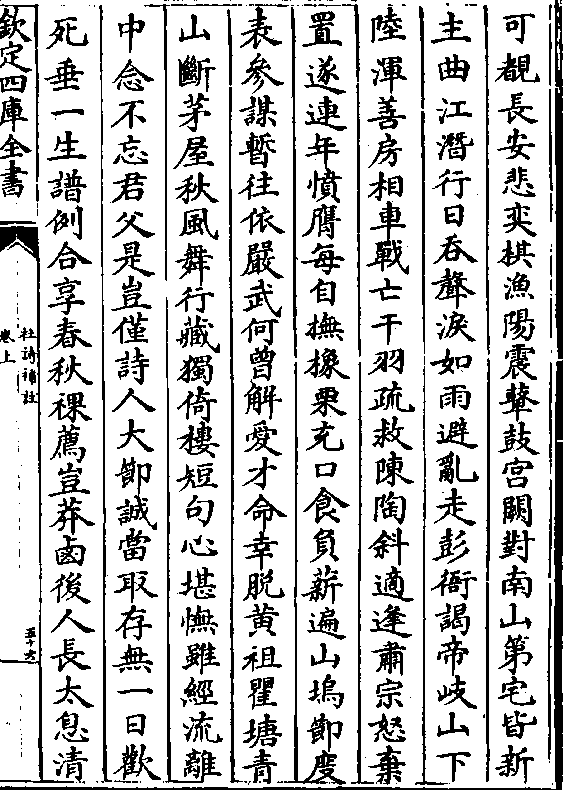 可覩長安悲奕棋漁陽震鼙鼓宮闕對南山第宅皆新
主曲江潛行日吞聲淚如雨避亂走彭衙謁帝岐山下
陸渾善房相車戰亡干羽疏救陳陶斜適逢肅宗怒棄
置遂連年憤膺每自撫橡栗充口食負薪遍山塢節度
表參謀暫往依嚴武何曾解愛才命幸脫黃祖瞿塘青
山斷茅屋秋風舞行藏獨倚樓短句心堪憮雖經流離
中念不忘君父是豈僅詩人大節誠當取存無一日歡
死垂一生譜例合享春秋祼薦豈莽鹵後人長太息清
欽定四庫全書
杜詩補註
卷上
五十六